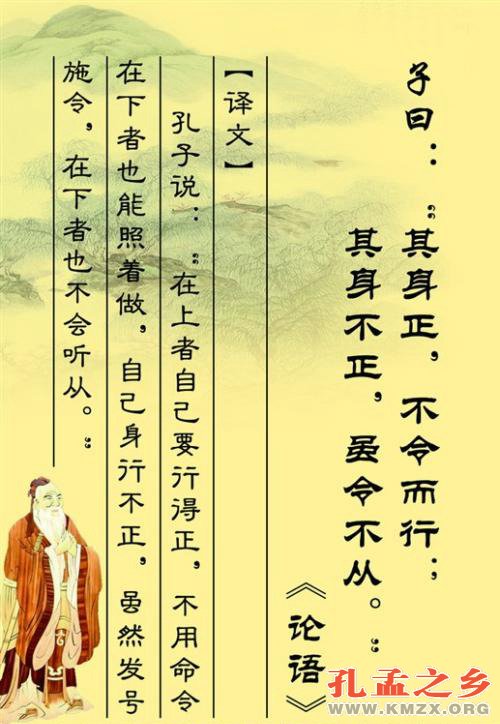 子曰：“其身正，不令而行；
其身不正，虽令不从。”
《论语》
【译文】
孔子说：“在上者自己要行得正，不用命令
在下者也能照着做，自己身行不正，虽然发号
施令，在下者也不会听从。”
孔孟之乡
WWW.KMZX.ORG